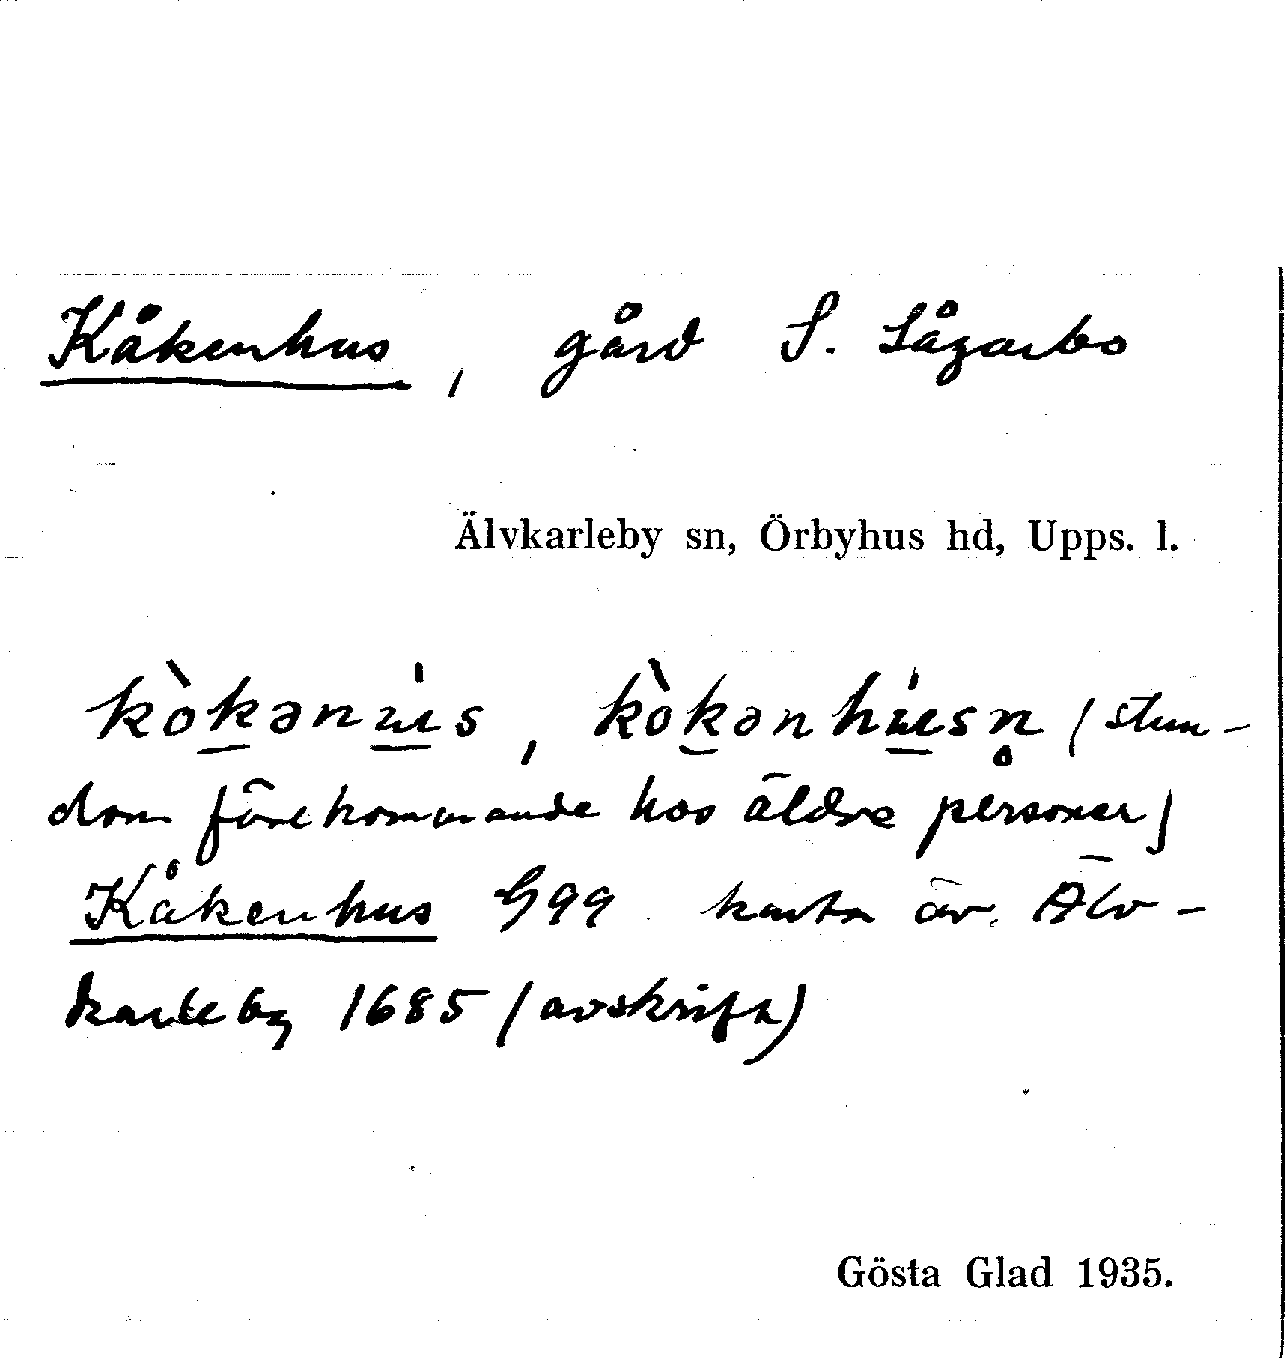 Kåkenhus, gård S. Sågarbo
Älvkarleby sn, Örbyhus hd, Upps. l.
kòkənu̍s, kòkənhu̍sn̥ (stun-
dom förekommande hos äldre personer)
Kåkenhus G99 karta öv. Älv-
karleby 1685 (avskrift)
Gösta Glad 1935.